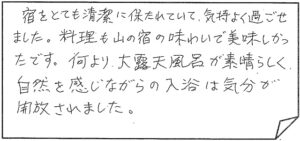 宿をとても清潔に保たれていて、気持よく過ごせ
ました。料理も山の宿の味わいで美味しかっ
たです。何より、大露天風呂が素晴らしく、
自然を感じながらの入浴は気分が
開放されました。